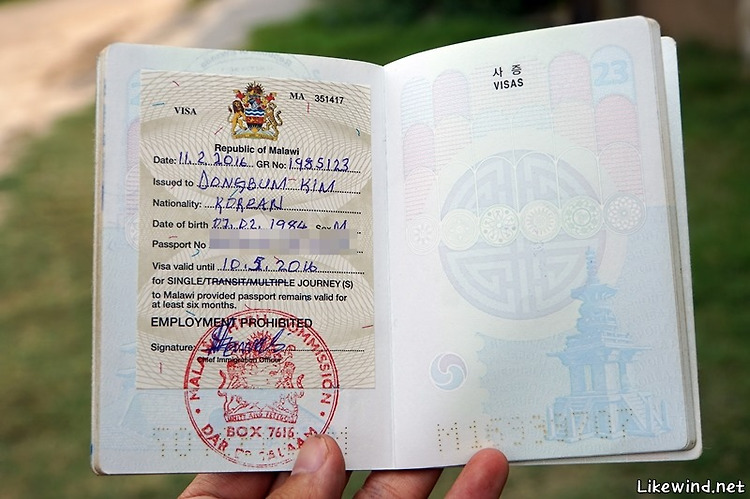 VISA MA 351417
Republic of Malawi
Date: 11.2.2016 GR No: 1985123
Issued to DONGBUM KIM
Nationality: KOREAN
Date of birth 07.02.1984 Sex M
Passport No
Visa valid until 10.5.2016
for SINGLE/TRANSIT/MULTIPLE JOURNEY(S)
to Malawi provided passport remains valid for
at least six months.
EMPLOYMENT PROHIBITED
Signature:
Chief Immigration Officer
MALAWI COMMISSION
BOX 7616
DAR ES SALAAM
사 증
VISAS
23
Likewind.net